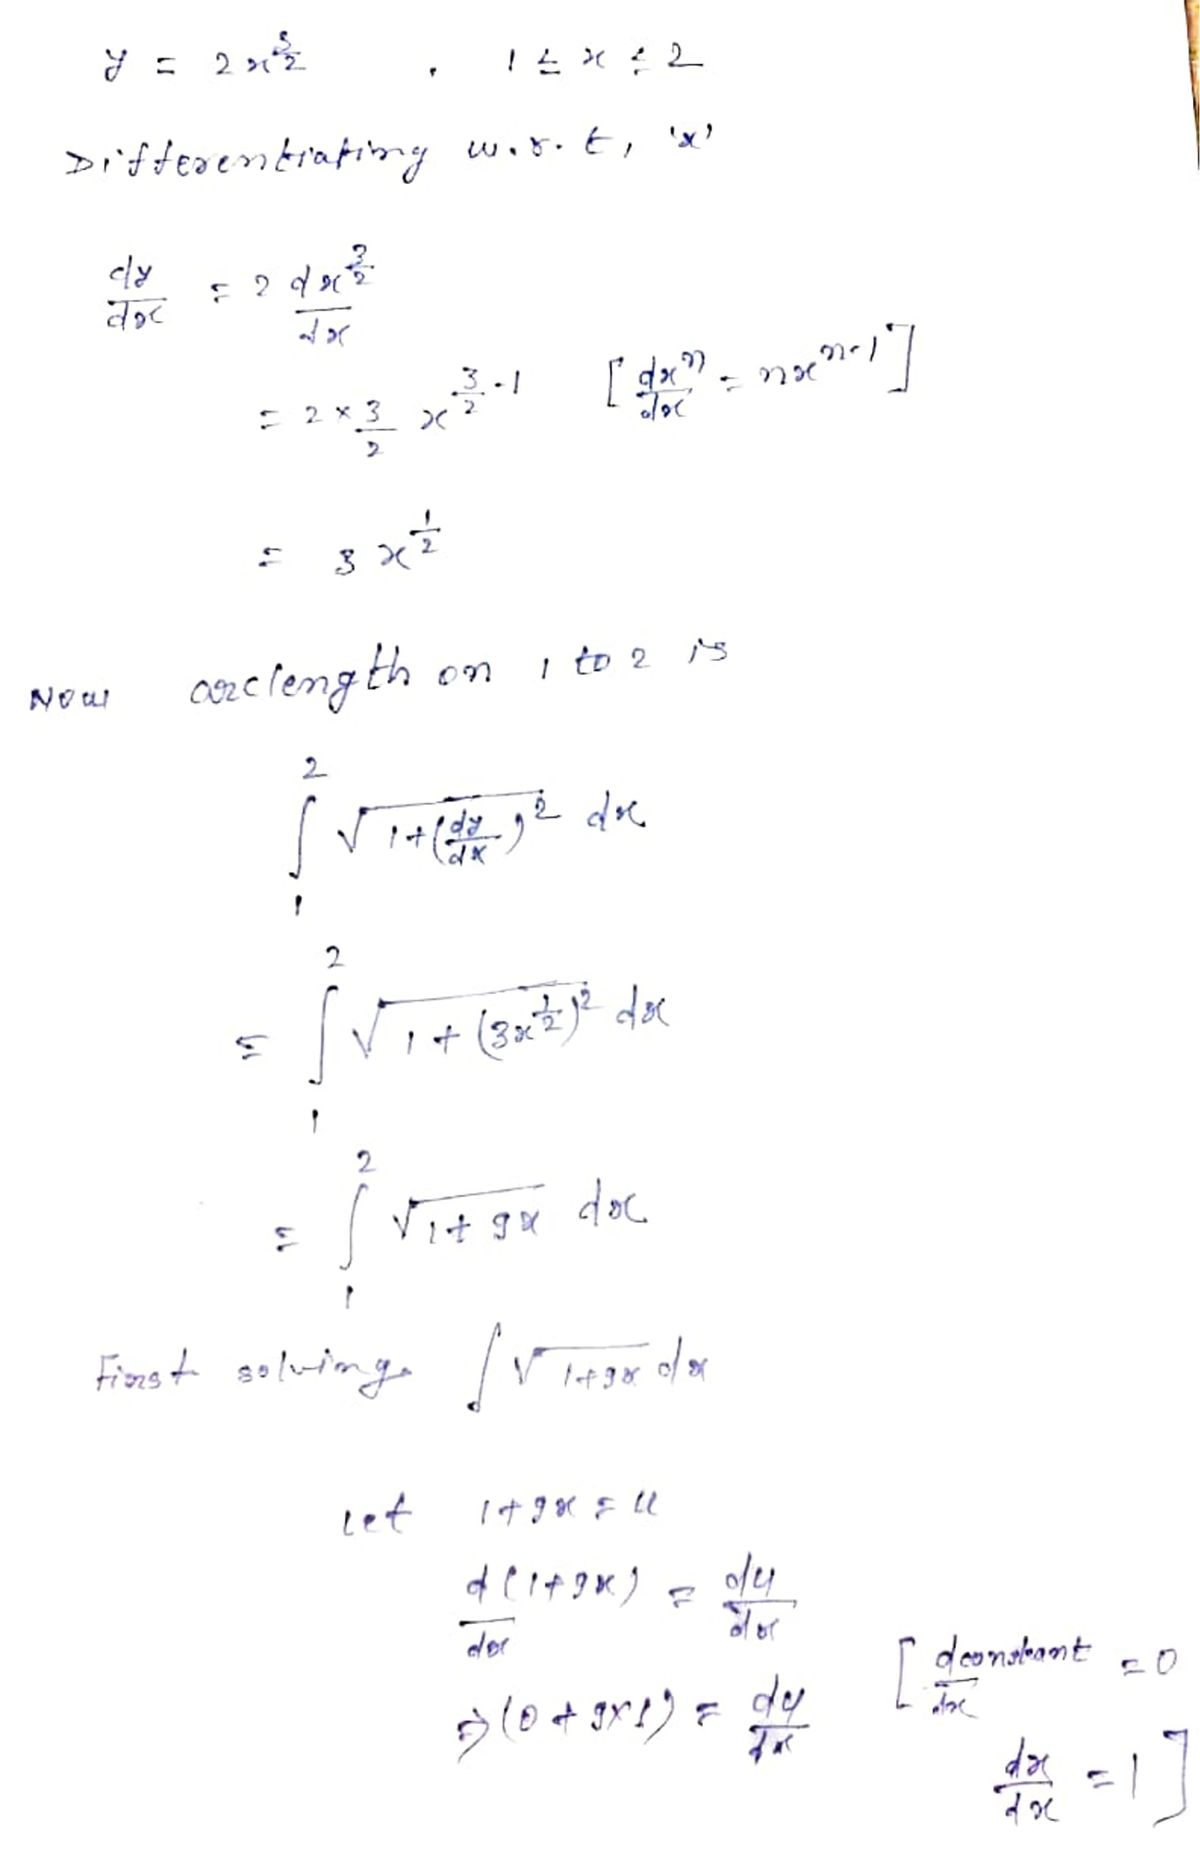 y = 2x^{3/2} , 1 ≤ x ≤ 2
Differentiating w.r.t, 'x'
dy/dx = 2 dx^{3/2}/dx
= 2 × 3/2 x^{3/2 - 1} [dx^n/dx = nx^{n-1}]
= 3 x^{1/2}
Now arclength on 1 to 2 is
∫_1^2 √(1+(dy/dx)^2) dx
= ∫_1^2 √(1+(3x^{1/2})^2) dx
= ∫_1^2 √(1+9x) dx
First solving ∫√(1+9x) dx
Let 1+9x = u
d(1+9x)/dx = du/dx
⇒ (0+9×1) = du/dx [dconstant/dx = 0
dx/dx = 1]